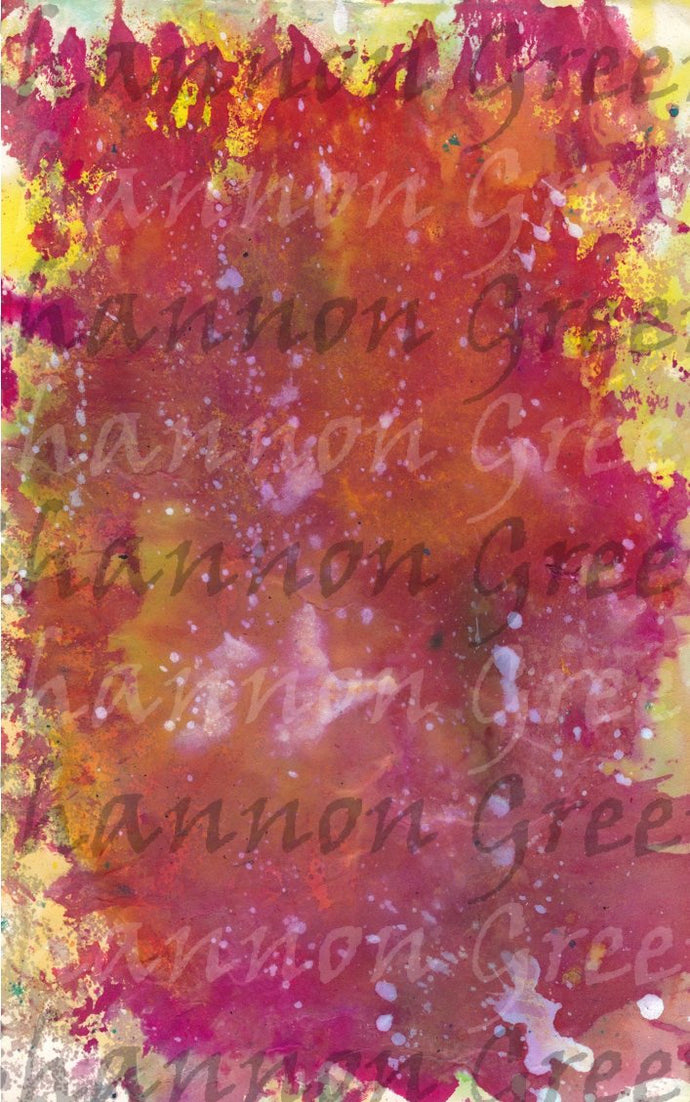 Shannon Green
Shannon Green
Shannon Green
Shannon Green
Shannon Green
Shannon Green
Shannon Green
Shannon Green
Shannon Green